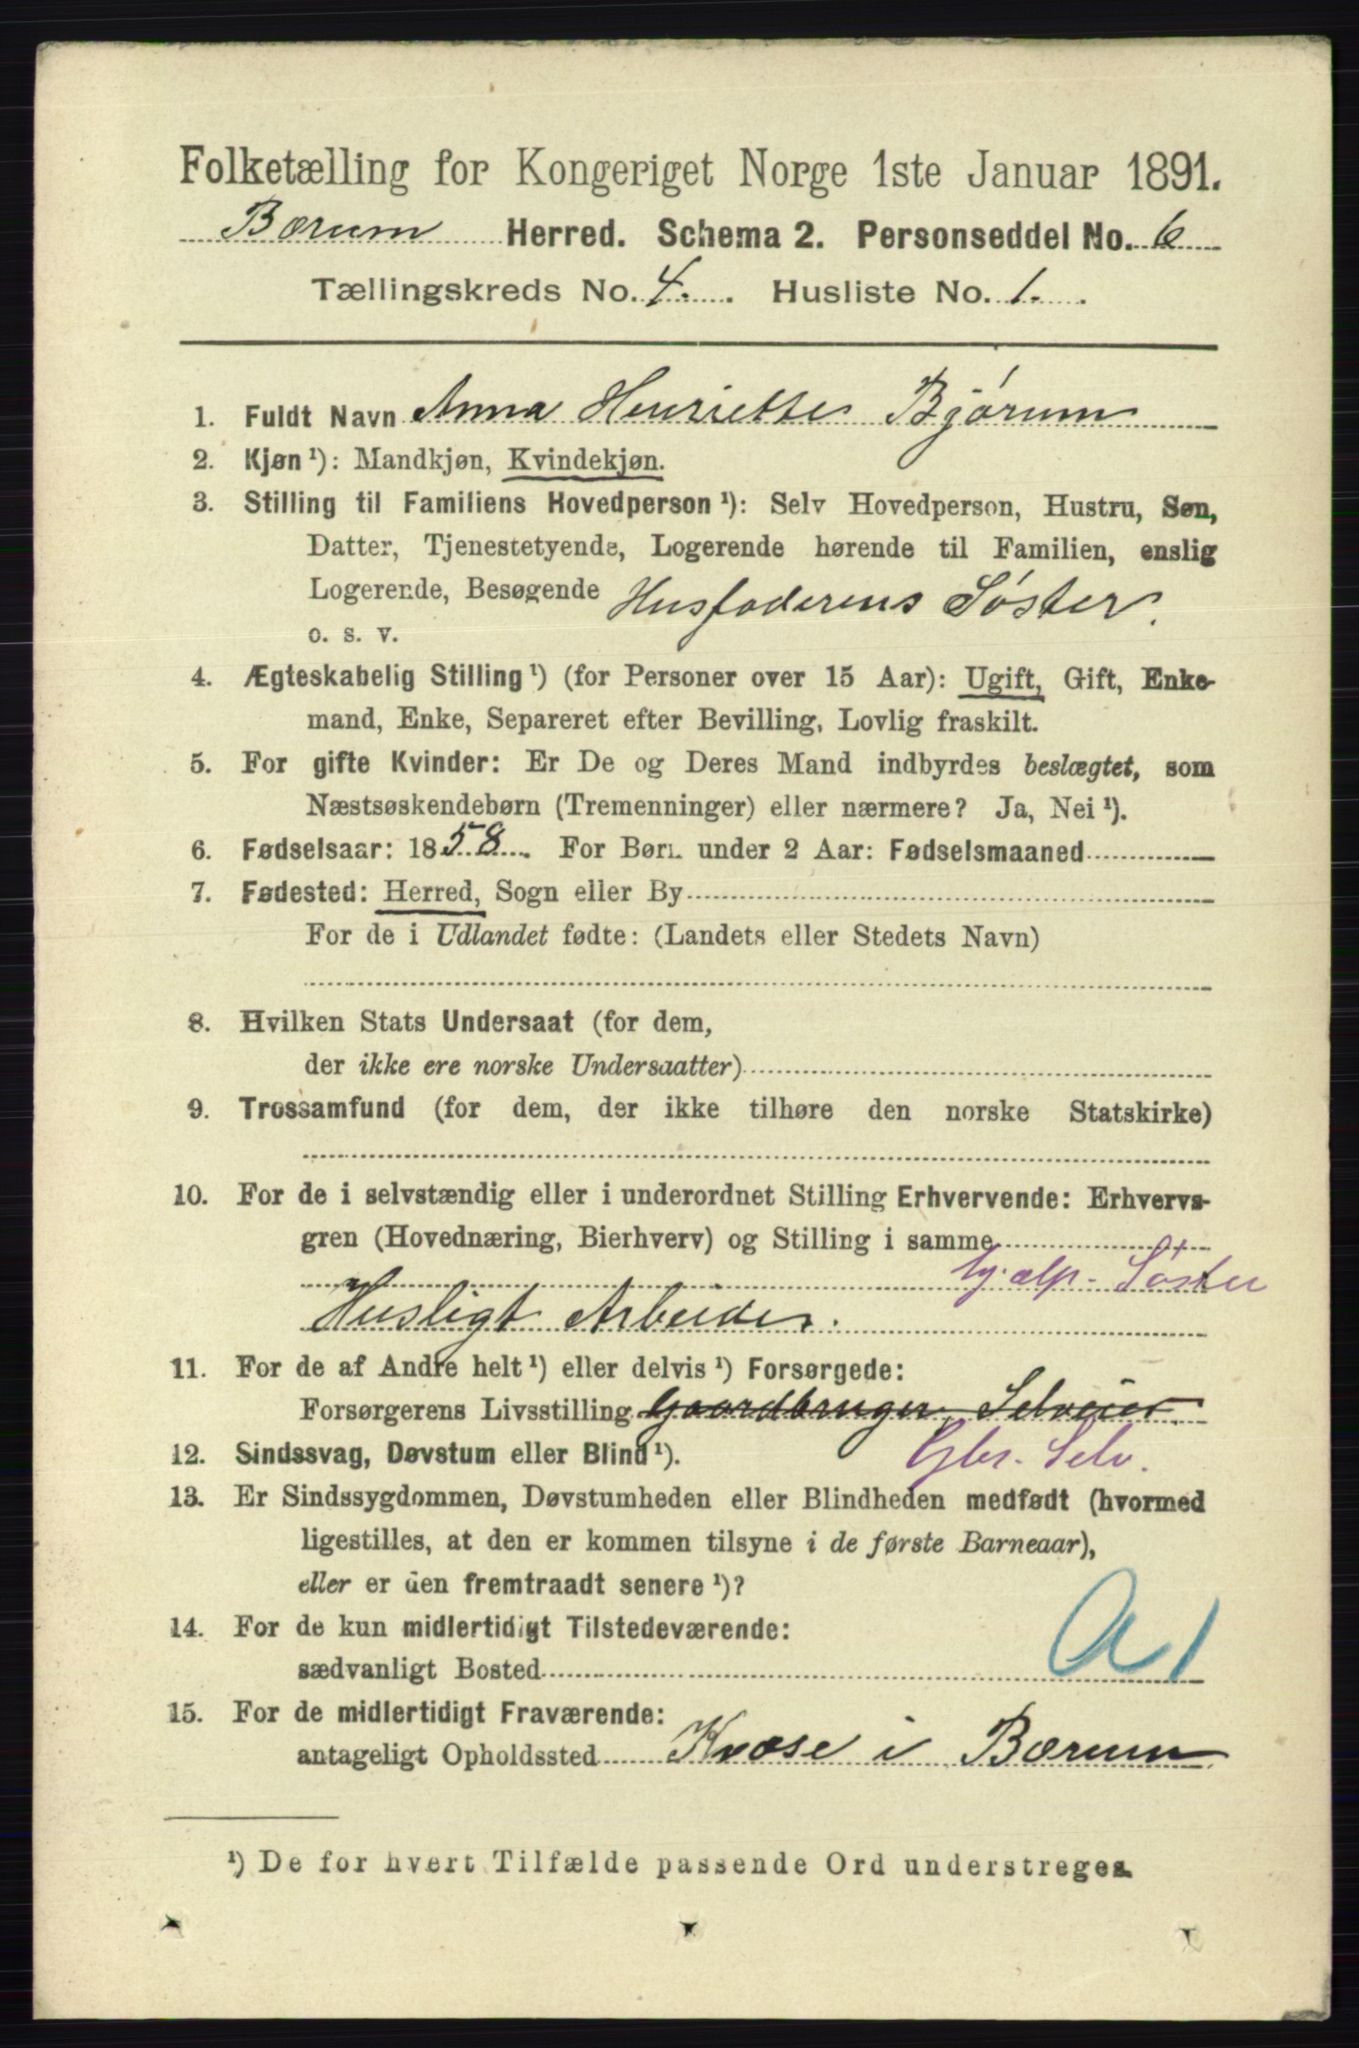 Folketælling for Kongeriget Norge 1ste Januar 1891.
Bærum Herred. Schema 2. Personseddel No. 6
Tællingskreds No. 4. Husliste No. 1.
1. Fuldt Navn Anna Henriette Bjørum
2. Kjøn ¹): Mandkjøn, Kvindekjøn.
3. Stilling til Familiens Hovedperson ¹): Selv Hovedperson, Hustru, Søn,
Datter, Tjenestetyende, Logerende hørende til Familien, enslig
Logerende, Besøgende Husfaderens Søster.
o. s. v.
4. Ægteskabelig Stilling ¹) (for Personer over 15 Aar): Ugift, Gift, Enke-
mand, Enke, Separeret efter Bevilling, Lovlig fraskilt.
5. For gifte Kvinder: Er De og Deres Mand indbyrdes beslægtet, som
Næstsøskendebørn (Tremenninger) eller nærmere? Ja, Nei ¹).
6. Fødselsaar: 1858. For Børn under 2 Aar: Fødselsmaaned
7. Fødested: Herred, Sogn eller By
For de i Udlandet fødte: (Landets eller Stedets Navn)
8. Hvilken Stats Undersaat (for dem,
der ikke ere norske Undersaatter)
9. Trossamfund (for dem, der ikke tilhøre den norske Statskirke)
10. For de i selvstændig eller i underordnet Stilling Erhvervende: Erhvervs-
gren (Hovednæring, Bierhverv) og Stilling i samme
hjælp. Søster
Husligt Arbeide.
11. For de af Andre helt ¹) eller delvis ¹) Forsørgede:
Forsørgerens Livsstilling Gaardbruger, Selveier.
12. Sindssvag, Døvstum eller Blind ¹). Gbr. Selv.
13. Er Sindssygdommen, Døvstumheden eller Blindheden medfødt (hvormed
ligestilles, at den er kommen tilsyne i de første Barneaar),
eller er den fremtraadt senere ¹)?
14. For de kun midlertidigt Tilstedeværende:
sædvanligt Bosted A 1
15. For de midlertidigt Fraværende:
antageligt Opholdssted Kvæse i Bærum.
¹) De for hvert Tilfælde passende Ord understreges.